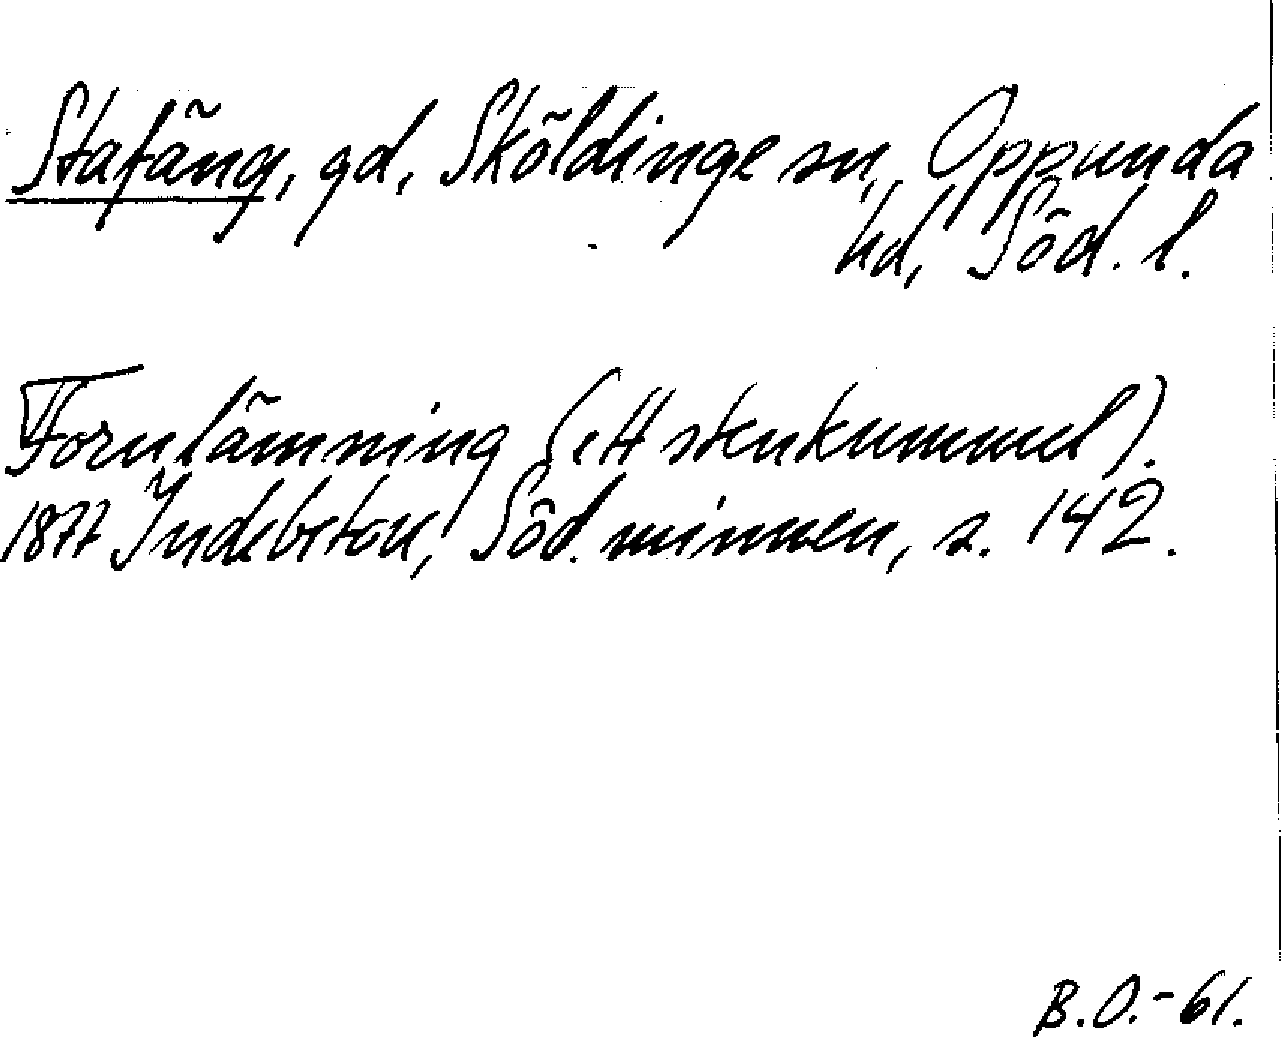 Stafäng, gd, Sköldinge sn, Oppunda
hd, Söd. l.
Fornlämning (ett stenkummel).
1877 Indebetou, Söd. minnen, s. 142.
B.O.-61.